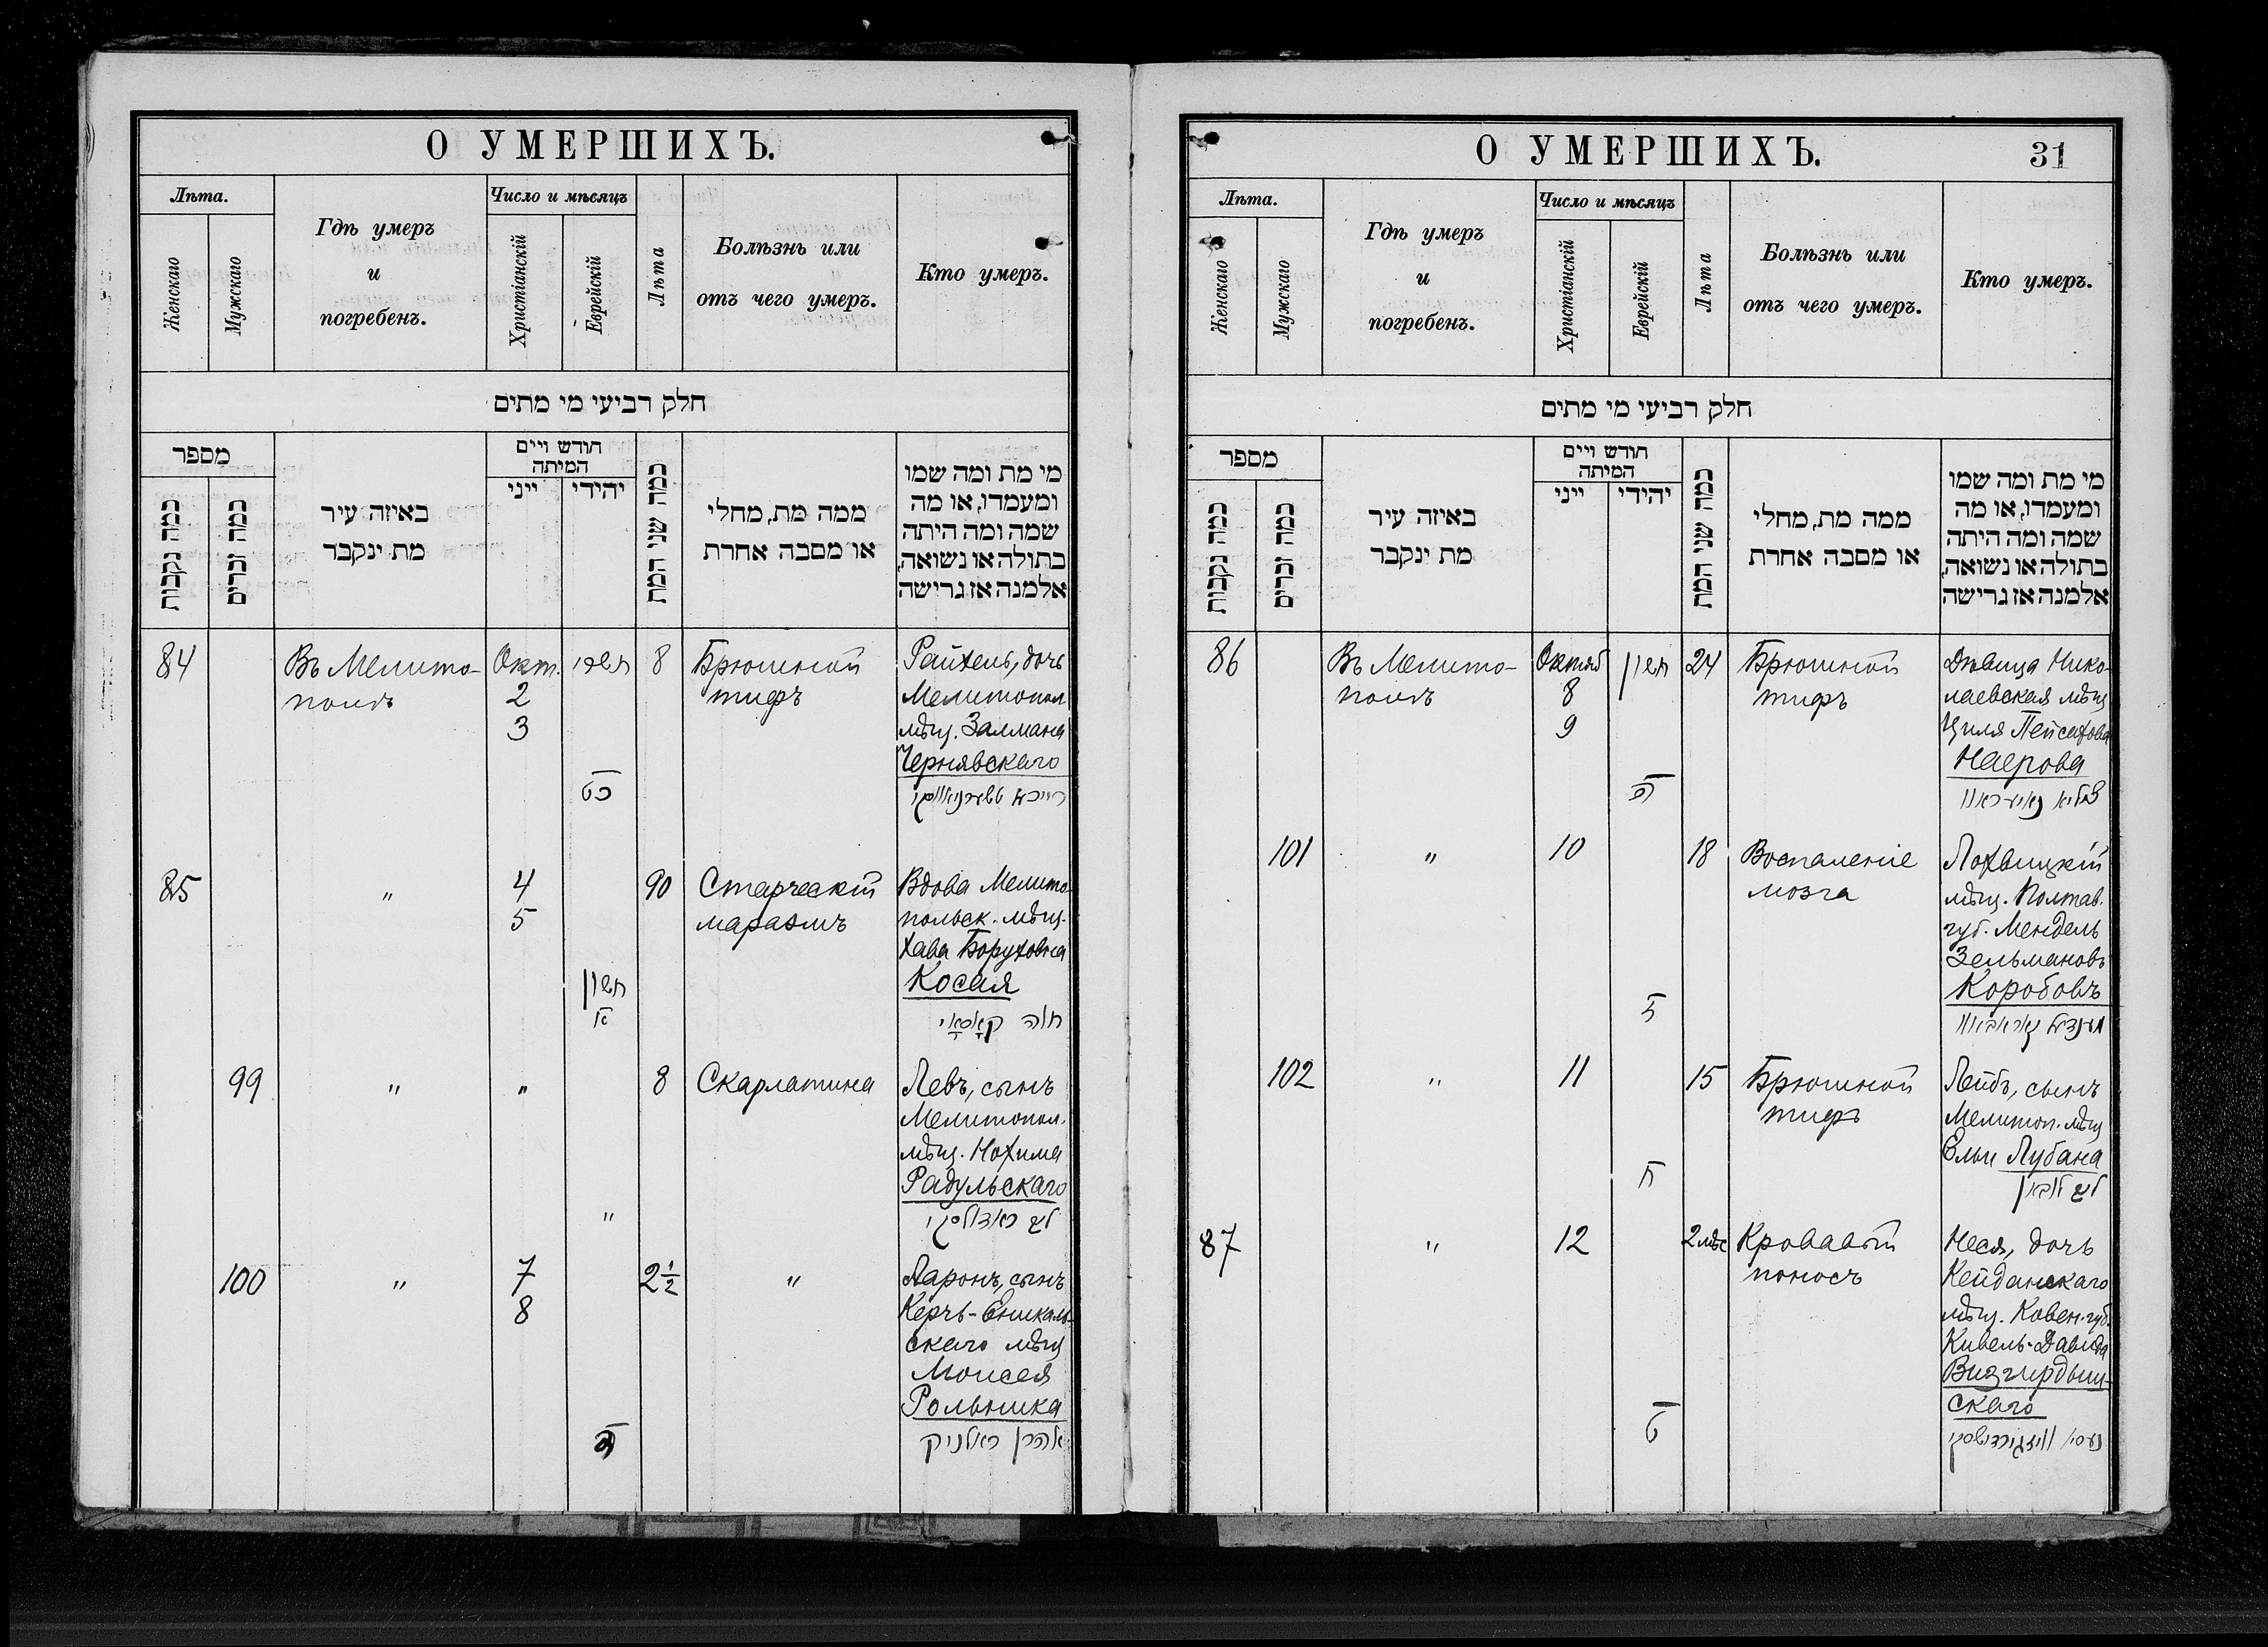 О УМЕРШИХЪ.
Лѣта.
Женскаго
Мужскаго
Гдѣ умеръ
и
погребенъ.
Число и мѣсяцъ
Христіанскій
Еврейскій
Лѣта
Болѣзнь или
отъ чего умеръ.
Кто умеръ.
חלק רביעי מי מתים
מספר
כמה נקבות
כמה זכרים
באיזה עיר
מת ינקבר
חודש ויים
המיתה
ייני
יהידי
כמה שני המת
ממה מת, מחלי
או מסבה אחרת
מי מת ומה שמו
ומעמדו, או מה
שמה ומה היתה
בתולה או נשואה,
אלמנה אז גרישה
84
Въ Мелито-
полѣ
Окт.
2
3
תשרי
כט
8
Брюшной
тифъ
Райхель, дочь
Мелитопол
мѣщ. Залмана
Чернявскаго
רייכעל טשערניאווסקי
85
"
4
5
חשון
א
90
Старческій
маразмъ
Вдова Мелито-
польск. мѣщ.
Хава Боруховна
Косая
חוה קאסאי
99
"
"
"
8
Скарлатина
Левъ, сынъ
Мелитопол.
мѣщ. Нохима
Радульскаго
לעב ראדולסקי
100
"
7
8
ד
2½
"
Аронъ, сынъ
Керчь-Еникаль-
скаго мѣщ
Моисея
Рольника
אהרן ראלניק
О УМЕРШИХЪ.
31
Лѣта.
Женскаго
Мужскаго
Гдѣ умеръ
и
погребенъ.
Число и мѣсяцъ
Христіанскій
Еврейскій
Лѣта
Болѣзнь или
отъ чего умеръ.
Кто умеръ.
חלק רביעי מי מתים
מספר
כמה נקבות
כמה זכרים
באיזה עיר
מת ינקבר
חודש ויים
המיתה
ייני
יהידי
כמה שני המת
ממה מת, מחלי
או מסבה אחרת
מי מת ומה שמו
ומעמדו, או מה
שמה ומה היתה
בתולה או נשואה,
אלמנה אז גרישה
86
Въ Мелито-
полѣ
Октяб
8
9
חשון
ה
24
Брюшной
тифъ
Дѣвица Нико-
лаевская мѣщ
Циля Пейсахова
Наерова
צילא נאיעראוו
101
"
10
ז
18
Воспаленіе
мозга
Лохвицкій
мѣщ. Полтав.
губ. Мендель
Зельмановъ
Коробовъ
מענדעל קאראבאוו
102
"
11
ח
15
Брюшной
тифъ
Лейбъ, сынъ
Мелитоп. мѣщ
Ельи Лубана
לעב לובאן
87
"
12
ט
2 мѣс
Кровавый
поносъ
Неся, дочь
Кейданскаго
мѣщ. Ковен. губ.
Кивель-Давида
Визгирдыш-
скаго
נעסי וויזגירדישסקי